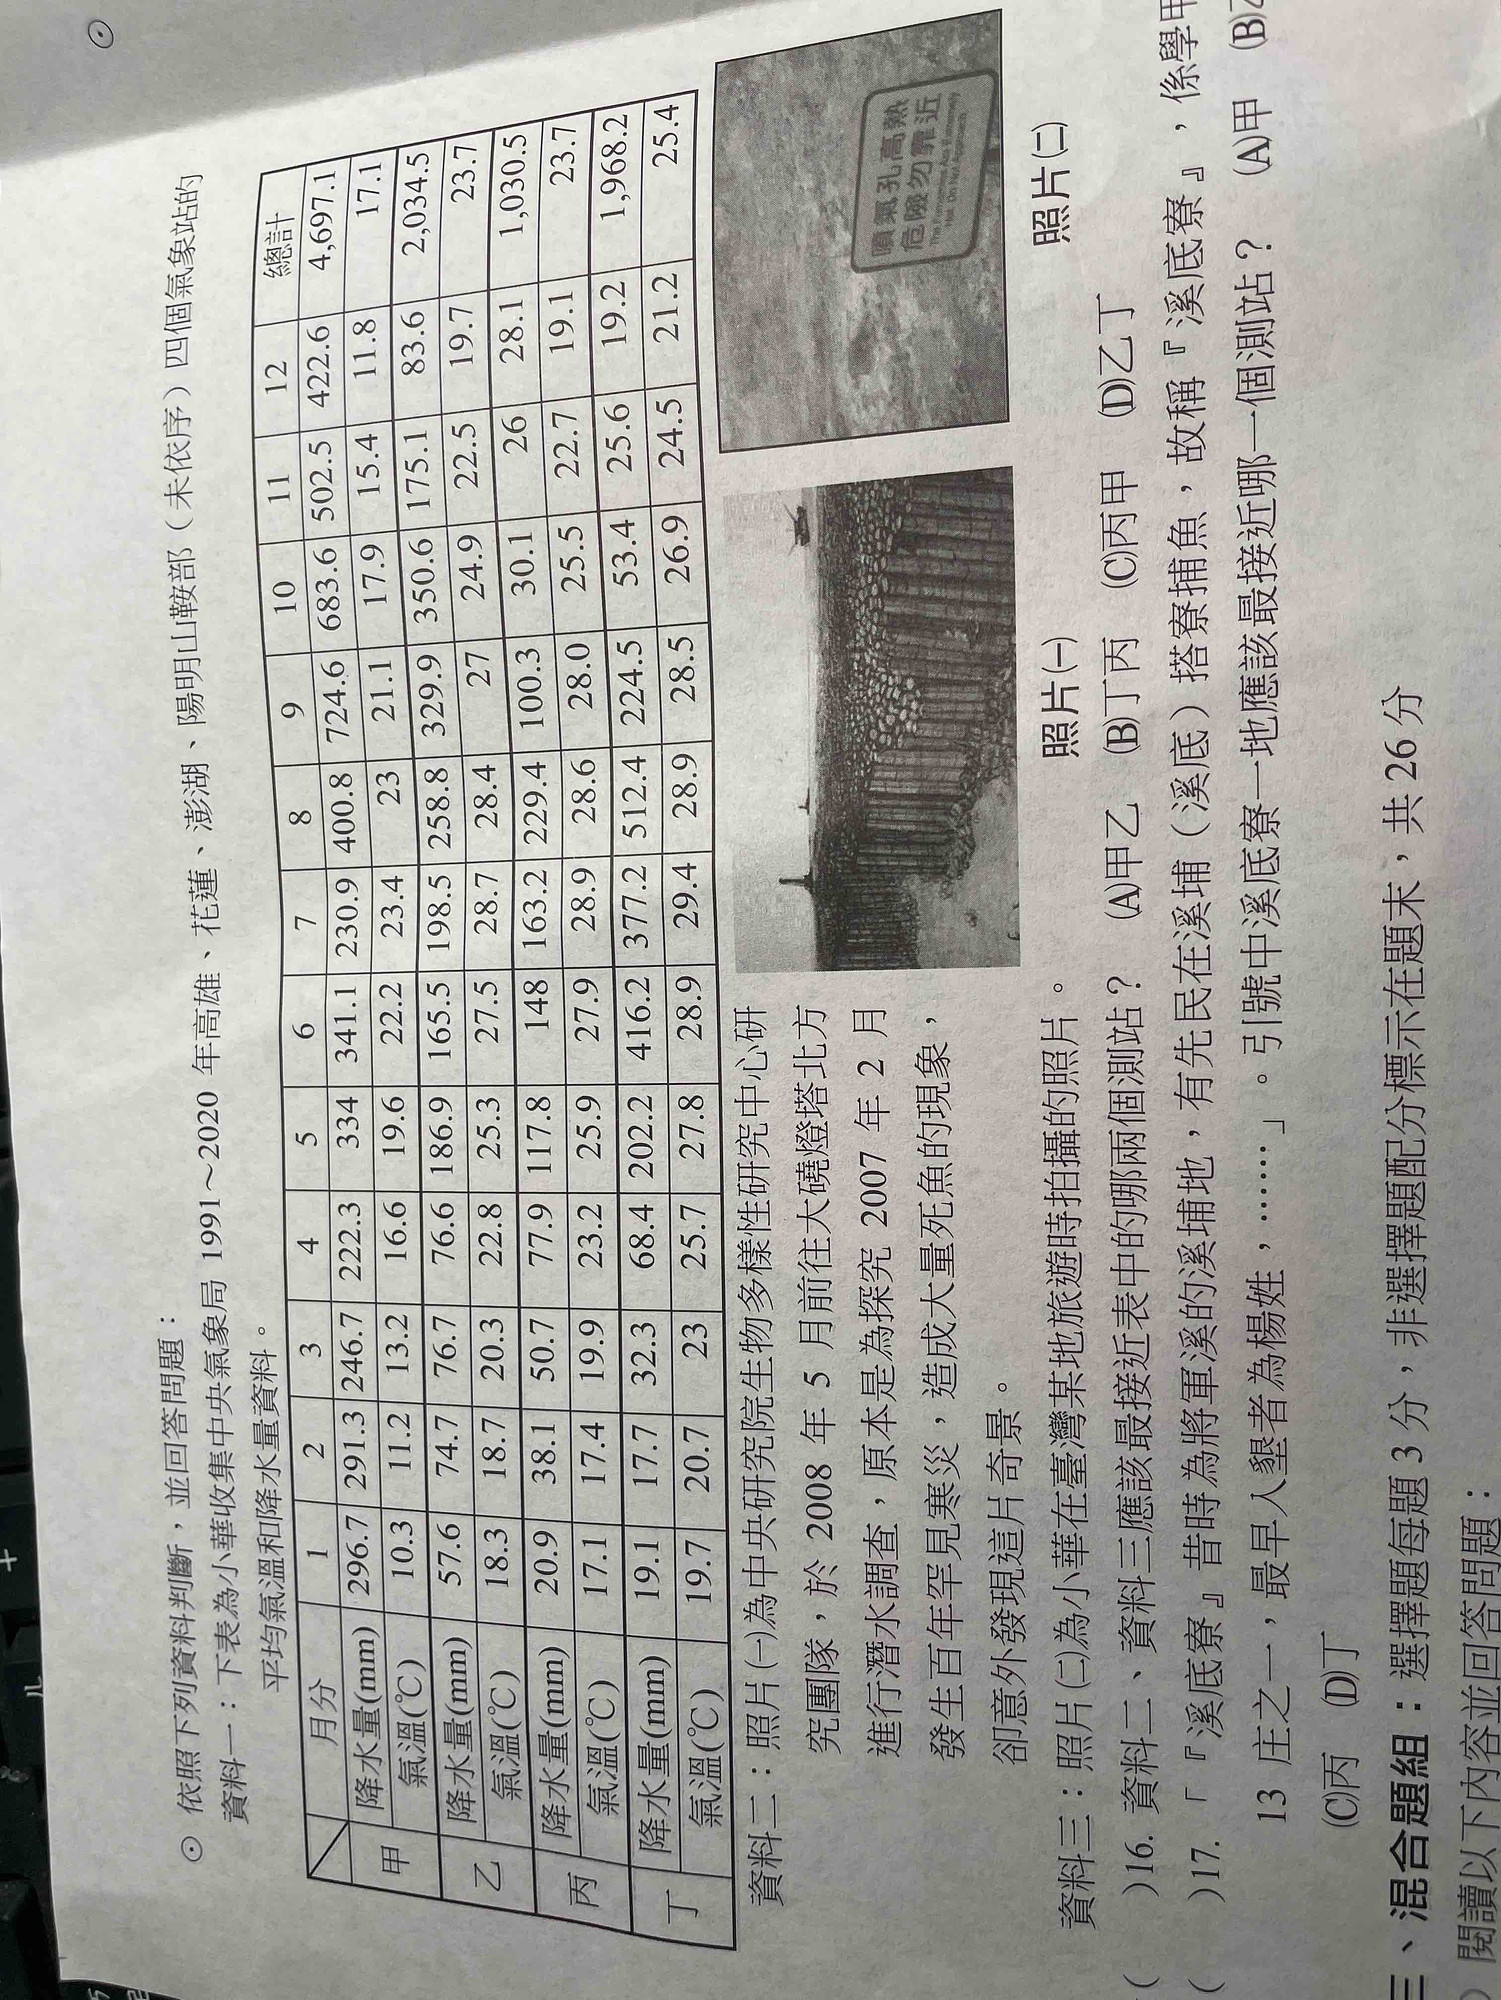 ⊙ 依照下列資料判斷，並回答問題：
資料一：下表為小華收集中央氣象局 1991～2020 年高雄、花蓮、澎湖、陽明山鞍部（未依序）四個氣象站的
平均氣溫和降水量資料。
月分 1 2 3 4 5 6 7 8 9 10 11 12 總計
甲 降水量(mm) 296.7 291.3 246.7 222.3 334 341.1 230.9 400.8 724.6 683.6 502.5 422.6 4,697.1
氣溫(℃) 10.3 11.2 13.2 16.6 19.6 22.2 23.4 23 21.1 17.9 15.4 11.8 17.1
乙 降水量(mm) 57.6 74.7 76.7 76.6 186.9 165.5 198.5 258.8 329.9 350.6 175.1 83.6 2,034.5
氣溫(℃) 18.3 18.7 20.3 22.8 25.3 27.5 28.7 28.4 27 24.9 22.5 19.7 23.7
丙 降水量(mm) 20.9 38.1 50.7 77.9 117.8 148 163.2 229.4 100.3 30.1 26 28.1 1,030.5
氣溫(℃) 17.1 17.4 19.9 23.2 25.9 27.9 28.9 28.6 28.0 25.5 22.7 19.1 23.7
丁 降水量(mm) 19.1 17.7 32.3 68.4 202.2 416.2 377.2 512.4 224.5 53.4 25.6 19.2 1,968.2
氣溫(℃) 19.7 20.7 23 25.7 27.8 28.9 29.4 28.9 28.5 26.9 24.5 21.2 25.4
資料二：照片㈠為中央研究院生物多樣性研究中心研
究團隊，於 2008 年 5 月前往大磽燈塔北方
進行潛水調查，原本是為探究 2007 年 2 月
發生百年罕見寒災，造成大量死魚的現象，
卻意外發現這片奇景。
噴氣孔高熱
危險勿靠近
The Fumaroles Are Extremely
Hot. Do Not Approach.
照片㈠
照片㈡
資料三：照片㈡為小華在臺灣某地旅遊時拍攝的照片。
( )16. 資料二、資料三應該最接近表中的哪兩個測站？ (A)甲乙 (B)丁丙 (C)丙甲 (D)乙丁
( )17. 「『溪底寮』昔時為將軍溪的溪埔地，有先民在溪埔（溪底）搭寮捕魚，故稱『溪底寮』，係學甲
13 庄之一，最早入墾者為楊姓，……」。引號中溪底寮一地應該最接近哪一個測站？ (A)甲 (B)乙
(C)丙 (D)丁
三、混合題組：選擇題每題 3 分，非選擇題配分標示在題末，共 26 分
閱讀以下內容並回答問題：